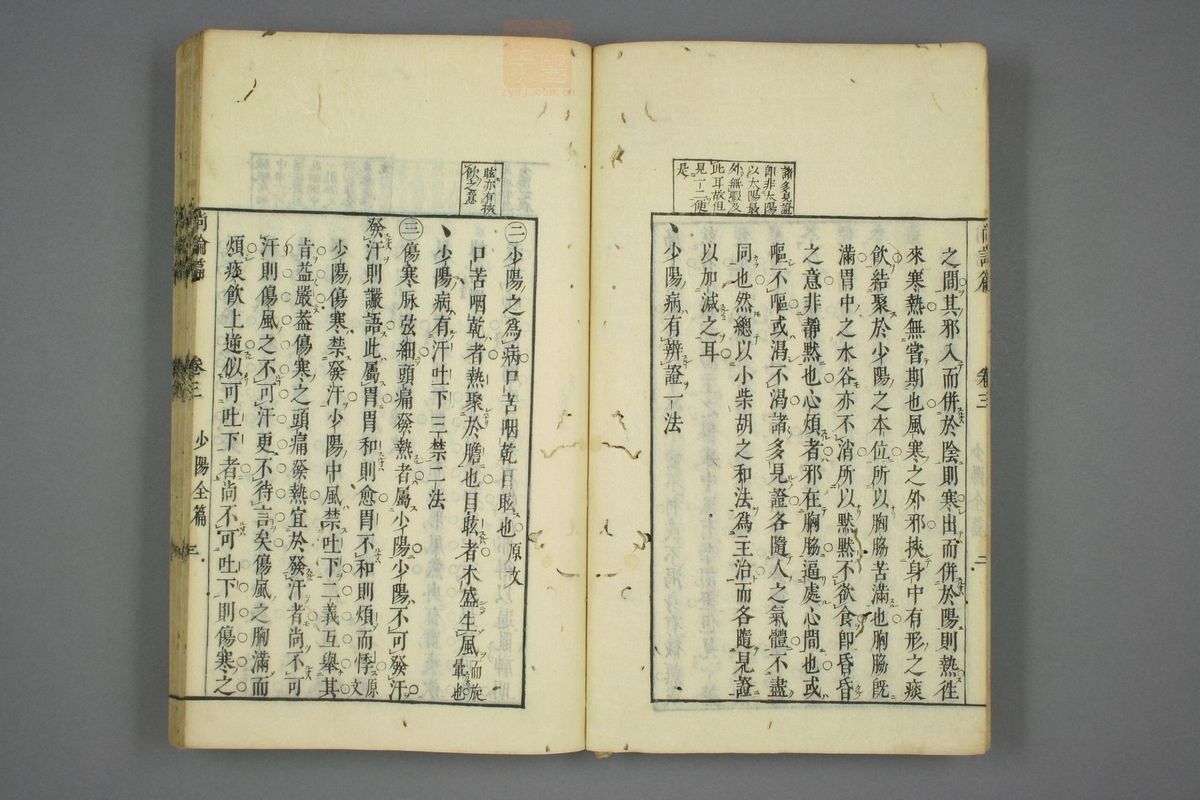 諸多見證
即非太陽
以太陽最
外無暇及
此耳故但
見一二便
是
之間其邪入而併於陰則寒出而併於陽則熱徃
來寒熱無常期也風寒之外邪挾身中有形之痰
飲結聚於少陽之本位所以胸脇苦滿也胸脇旣
滿胃中之水谷亦不消所以黙黙不欲食卽昏昏
之意非靜黙也心煩者邪在胸脇逼處心間也或
嘔不嘔或渴不渴諸多見證各隨人之氣體不盡
同也然總以小柴胡之和法爲主治而各隨見證
以加減之耳
少陽病有辨證一法
尚論篇 卷三 二
眩亦有挾
飲之意
㊁少陽之爲病口苦咽乾目眩也 原文
口苦咽乾者熱聚於膽也目眩者木盛生風而旋暈也
少陽病有汗吐下三禁二法
㊂傷寒脉弦細頭痛發熱者屬少陽少陽不可發汗
發汗則讝語此屬胃胃和則愈胃不和則煩而悸 原文
少陽傷寒禁發汗少陽中風禁吐下二義互舉其
旨益嚴葢傷寒之頭痛發熱宜於發汗者尚不可
汗則傷風之不可汗更不待言矣傷風之胸滿而
煩痰飲上逆似可吐下者尚不可吐下則傷寒之
尚論篇 卷三 少陽全篇 三